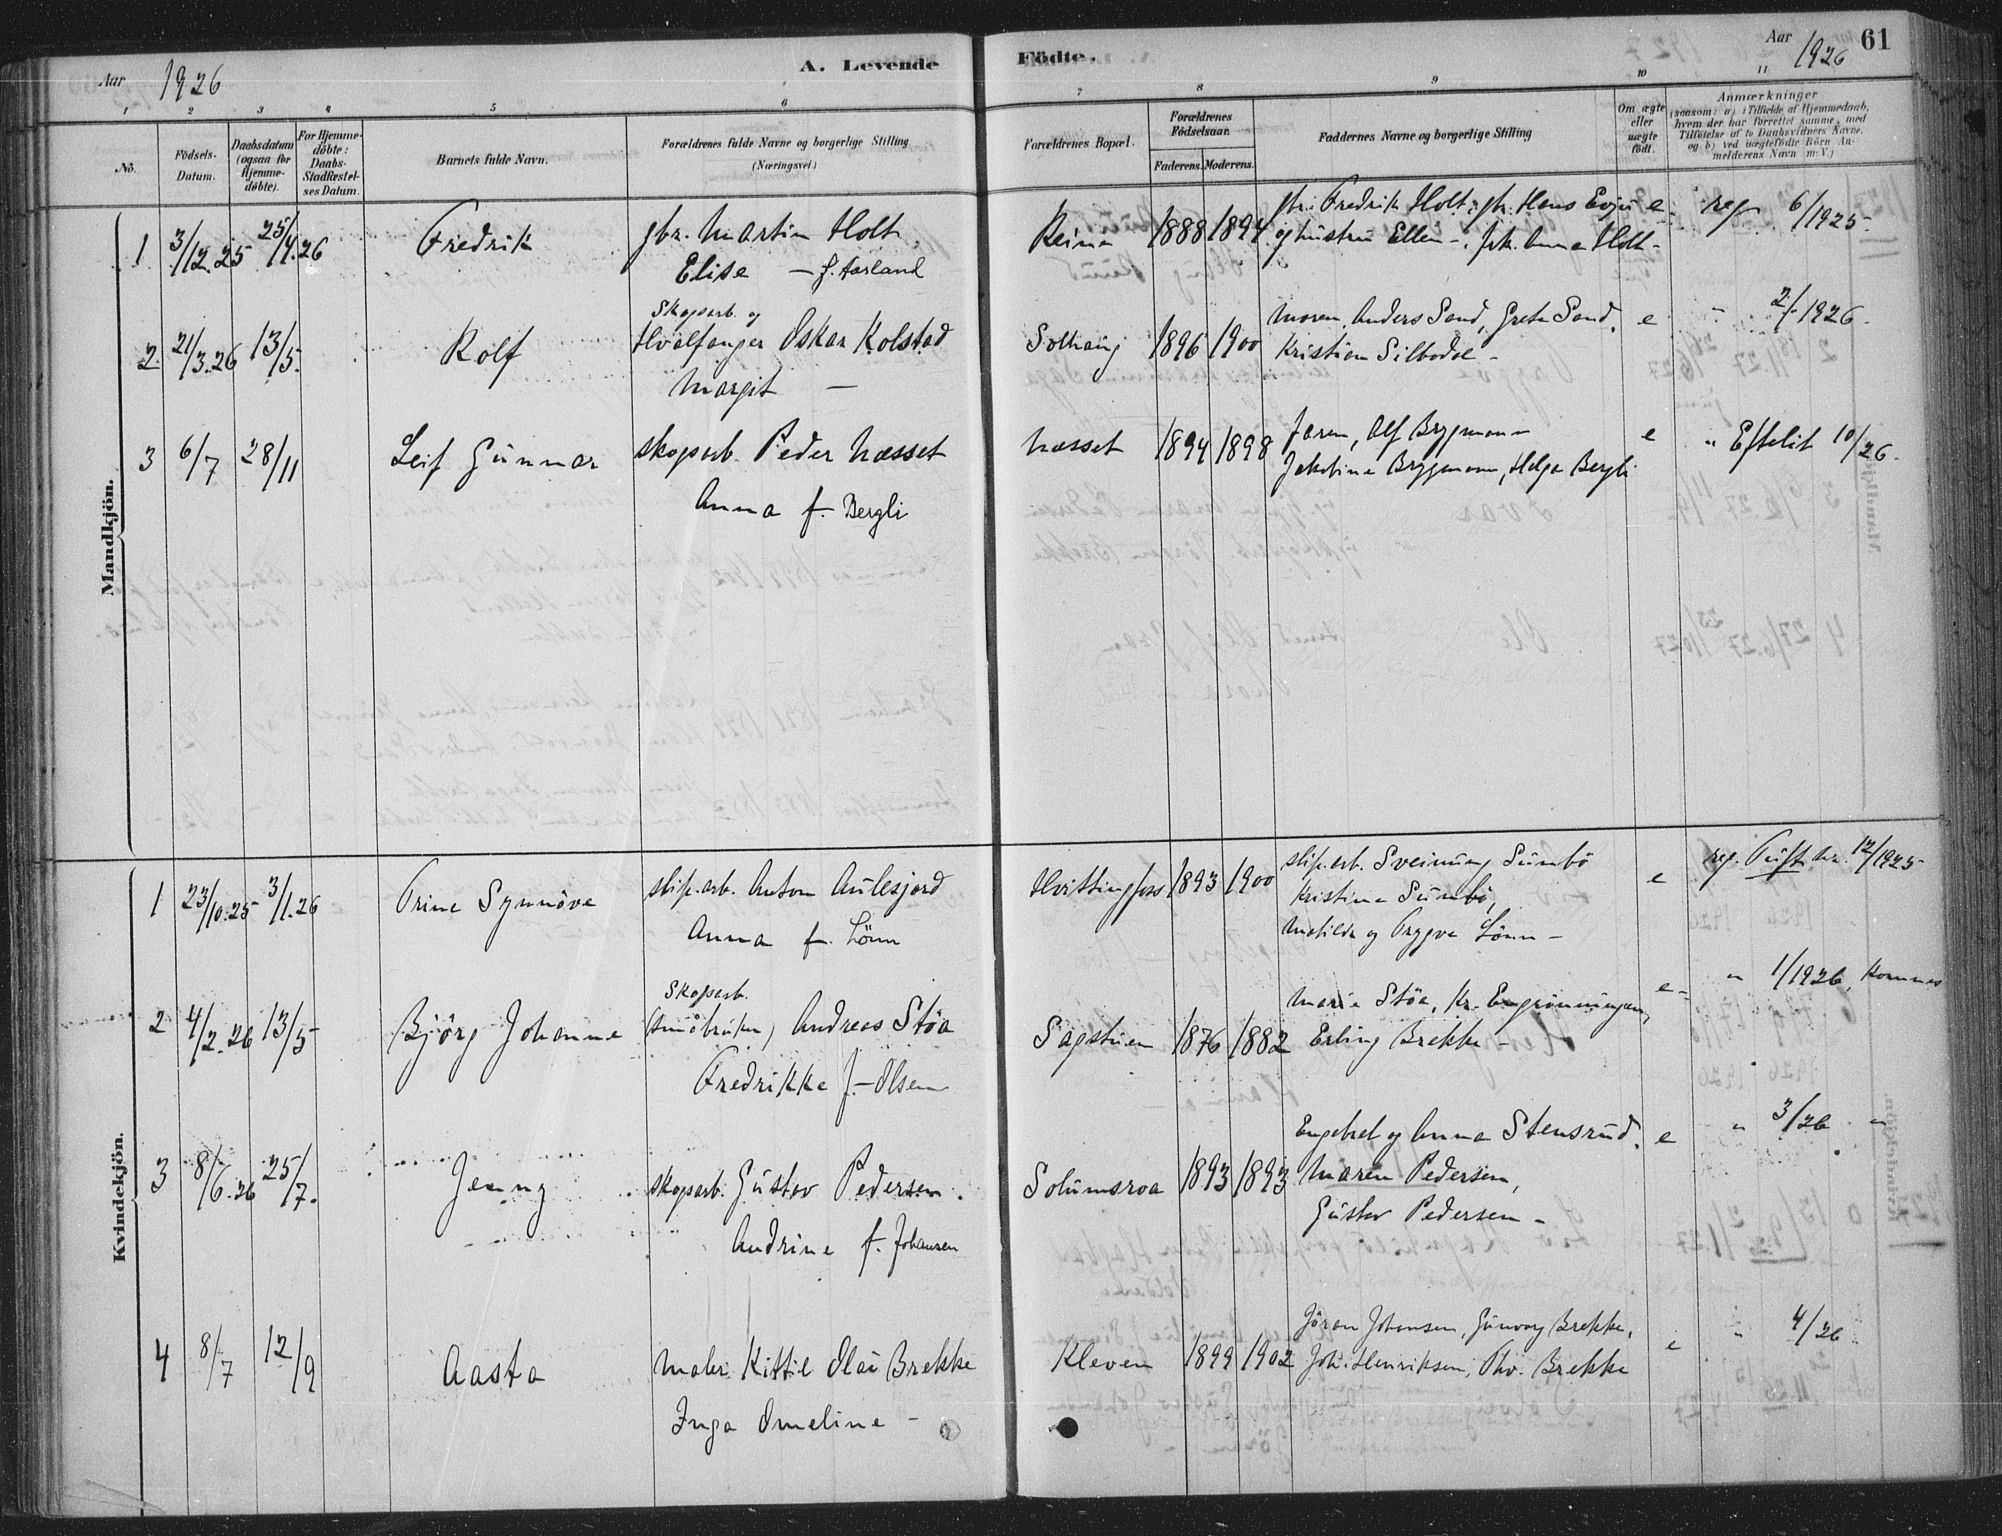 Aar 1926 A. Levende Födte. Aar 1926 61
1 2 3 4 5 6 7 8 9 10 11
No.
Födsels-Datum.
Daabsdatum (ogsaa for Hjemme-døbte).
For Hjemme-döbte: Daabs-Stadfæstel-ses Datum.
Barnets fulde Navn.
Forældrenes fulde Navne og borgerlige Stilling (Næringsvei.)
Forældrenes Bopæl.
Forældrenes Födselsaar.
Faderens. Moderens.
Faddernes Navne og borgerlige Stilling
Om ægte eller uægte född.
Anmærkninger
(saasom: a) i Tilfælde af Hjemmedaab,
hvem der har forrettet samme, med
Tilføielse af to Daabsvidners Navne.
og b) ved uægtefödte Börn An-
melderens Navn m. V.)
Mandkjön.
1 3/12.25 25/4.26 Fredrik gbr. Martin Holt
Elise — f. Aarland
Reine 1888 1894 gbr. Fredrik Holt, gbr. Hans Evju
og hustru Ellen -, frk. Anna Holt -
e. reg. 6/1925-
2 21/3.26 13/5. Rolf Skogsarb. og
Hvalfanger Oskar Kolstad
Margit —
Solhaug 1896 1900 Moren, Anders Sand, Grete Sand,
Kristian Silbodal -
e " 2/1926-
3 6/7 28/11 Leif Gunnar skogsarb. Peder Næsset
Anna f. Bergli
Næsset 1894 1898 Faren, Alf Bryggmann
Jakobine Bryggmann, Helga Bergli
e " Eftelöt 10/26.
Kvindekjön.
1 23/10.25 3/1.26 Trine Synnöve slip.arb. Anton Aulesjord
Anna f. Lönn
Hvittingfoss 1893 1900 slip.arb. Sveinung Sundbö
Kristine Sundbö,
Matilda og Trygve Lönn -
e reg. Tuft nr. 12/1925-
2 4/2.26 13/5 Björg Johanne Skogsarb.
(småbruker) Andreas Stöa
Fredrikke f. Olsen
Sagstuen 1876 1882 Marie Stöa, Kr. Engrönningen,
Erling Brekke -
e- " 1/1926, Komnes
3 8/6.26 25/7. Jenny skogsarb. Gustav Pedersen.
Andrine f. Johansen
Solumsroa 1893 1893 Engebret og Anna Stensrud.
Maren Pedersen,
Gustav Pedersen -
e " 3/26 "
4 8/7 12/9 Aasta maler Kittil Olai Brekke
Inga Emeline -
Kleven 1899 1902 Jöran Johansen, Gunvor Brekke,
Joh. Henriksen, Thv. Brekke
e " 4/26